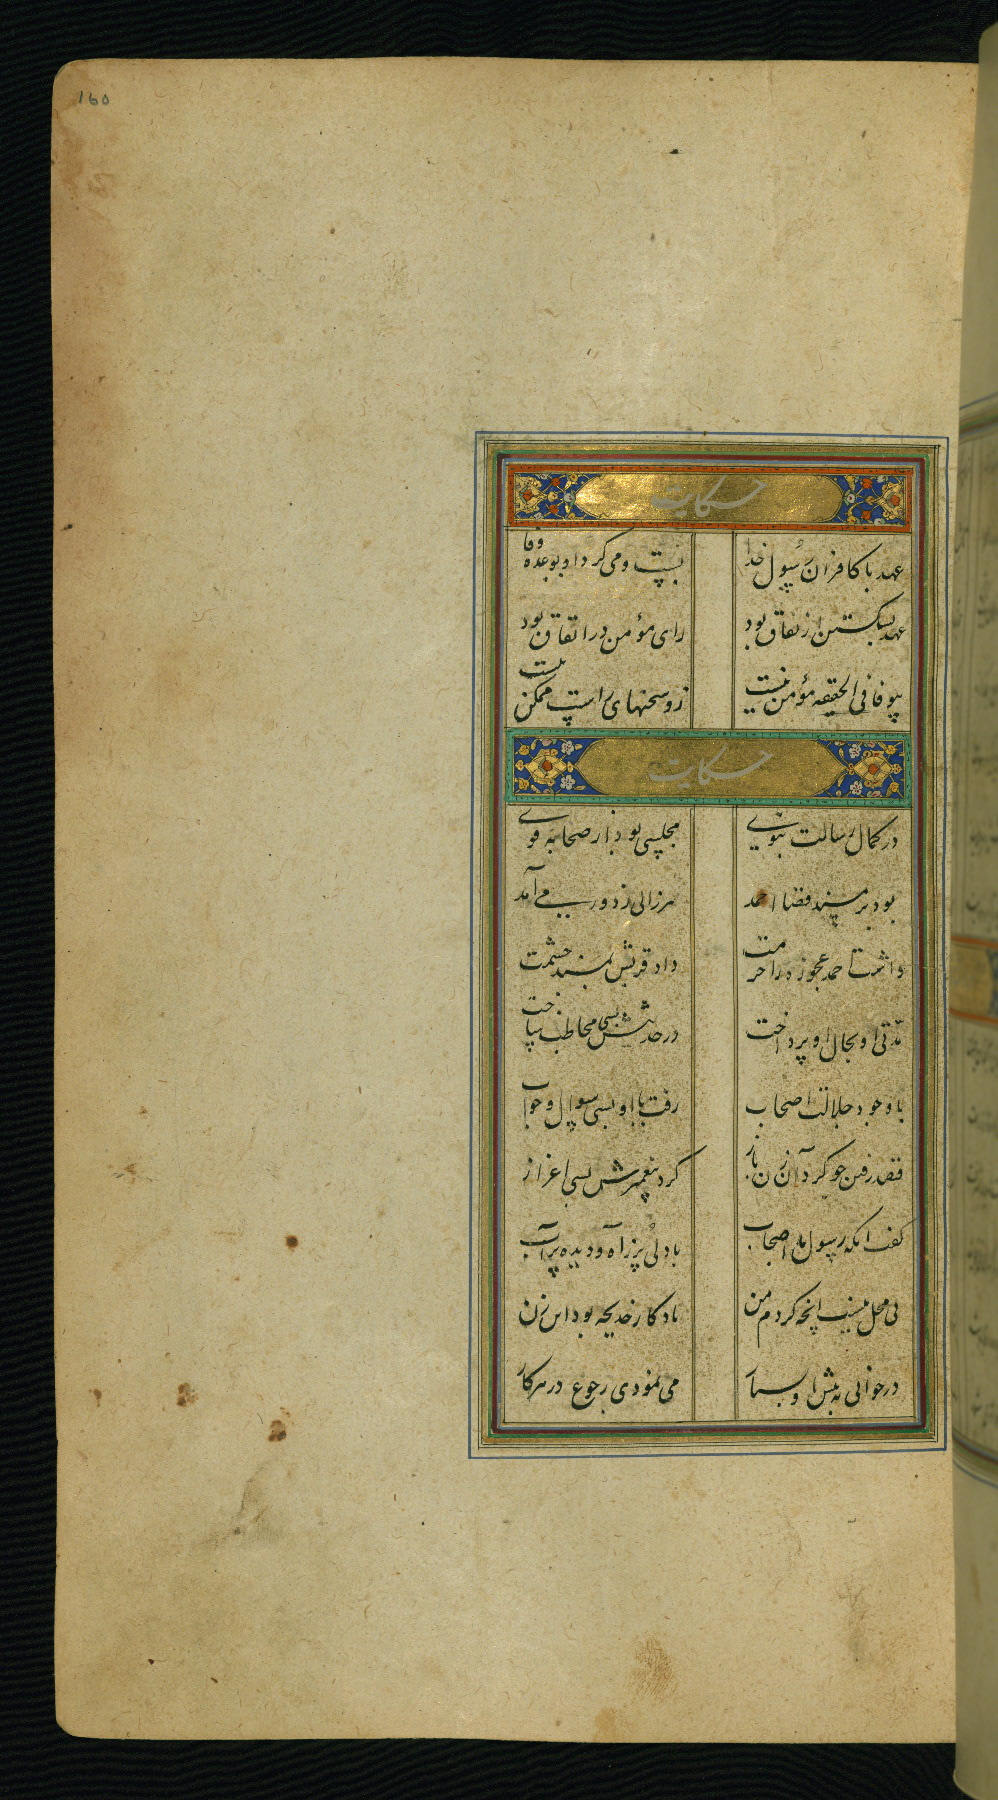 160
حکایت
عهد با کافران رسول خدا
بست و می کرد او بوعده وفا
عهد بشکستن از نفاق بود
رای مؤمن در اتفاق بود
بیوفا فی الحقیقه مؤمن نیست
زو سخنهای راست ممکن نیست
حکایت
در کمال رسالت نبوی
مجلسی بود از صحابه قوی
بود بر مسند قضا احمد
پیرزالی ز دور می آمد
داشت احمد عجوزه را حرمت
داد قربش بمسند حشمت
مدتی او بحال او پرداخت
در حدیثش بسی مخاطب ساخت
با وجود جلالت اصحاب
رفت با او بسی سوال و جواب
قصد رفتن چو کرد آن زن باز
کرد پیغمبرش بسی اعزاز
گفت آنگه رسول با اصحاب
با دلی پر ز آه و دیده پر آب
بی محل نیست آنچه کردم من
یادگار خدیجه بود این زن
در حوالی به پیش او بسیار
می نمودی رجوع در هر کار